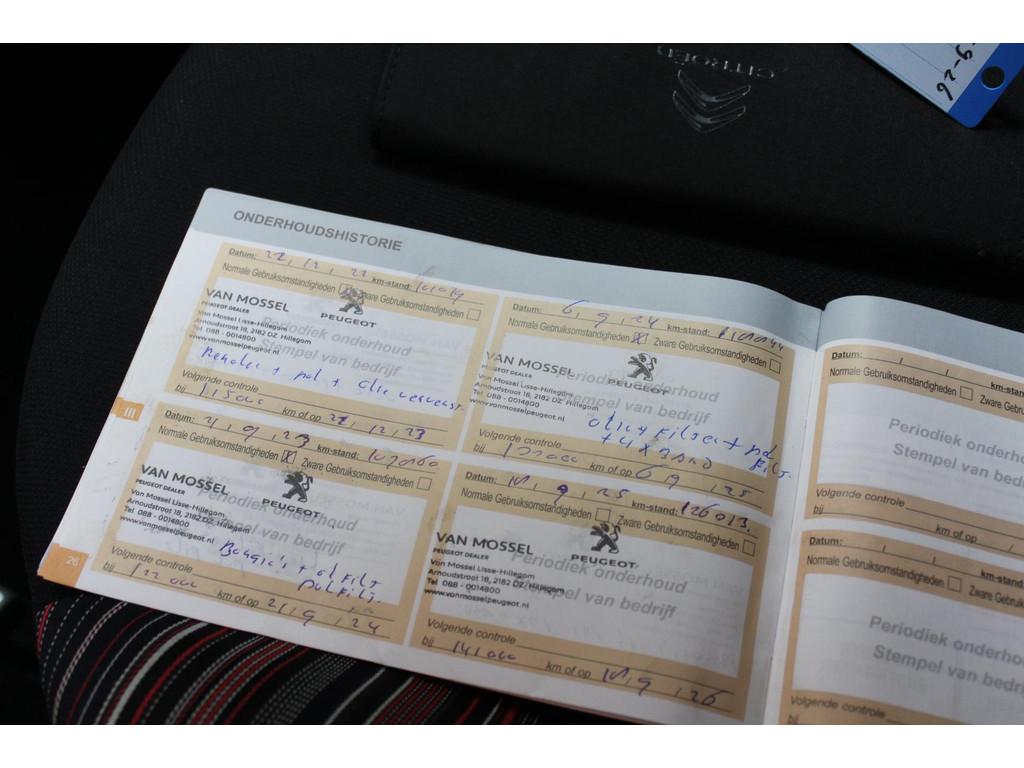 CITROËN
9-26
ONDERHOUDSHISTORIE
Datum: 22, 12, 22 km-stand:
Normale Gebruiksomstandigheden Zware Gebruiksomstandigheden
VAN MOSSEL
PEUGEOT DEALER
PEUGEOT
Van Mossel Lisse-Hillegom
Arnoudstroat 18, 2182 DZ Hillegom
Tel 088 - 0014800
www.vanmosselpeugeot.nl
Periodiek onderhoud
Stempel van bedrijf
+ pol + olie ververst.
Volgende controle
bij 115000 km of op 22, 12, 23
III
Datum: 2, 9, 23 km-stand:
Normale Gebruiksomstandigheden X Zware Gebruiksomstandigheden
VAN MOSSEL
PEUGEOT DEALER
PEUGEOT
Van Mossel Lisse-Hillegom
Arnoudstroat 18, 2182 DZ Hillegom
Tel 088 - 0014800
www.vanmosselpeugeot.nl
Periodiek onderhoud
Stempel van bedrijf
Bougie's +
Volgende controle
bij 122000 km of op 2, 9, 24
26
Datum: 6, 9, 24 km-stand:
Normale Gebruiksomstandigheden X Zware Gebruiksomstandigheden
VAN MOSSEL
PEUGEOT DEALER
PEUGEOT
Van Mossel Lisse-Hillegom
Arnoudstroat 18, 2182 DZ Hillegom
Tel 088 - 0014800
www.vanmosselpeugeot.nl
Periodiek onderhoud
Stempel van bedrijf
olie + filter + pol
+ 4 x band
Volgende controle
bij km of op 6, 9, 25
Datum: , 9, 25 km-stand: 126013.
Normale Gebruiksomstandigheden Zware Gebruiksomstandigheden
VAN MOSSEL
PEUGEOT DEALER
PEUGEOT
Van Mossel Lisse-Hillegom
Arnoudstroat 18, 2182 DZ Hillegom
Tel 088 - 0014800
www.vanmosselpeugeot.nl
Periodiek onderhoud
Stempel van bedrijf
Volgende controle
bij 141000 km of op , 9, 26
Datum: / / km-stand
Normale Gebruiksomstandigheden Zware Gebruiks
Periodiek onderho
Stempel van bedri
Volgende controle
bij km of op
Datum: / / km-stand
Normale Gebruiksomstandigheden Zware Gebru
Periodiek onder
Stempel van bed
Volgende controle
bij km of